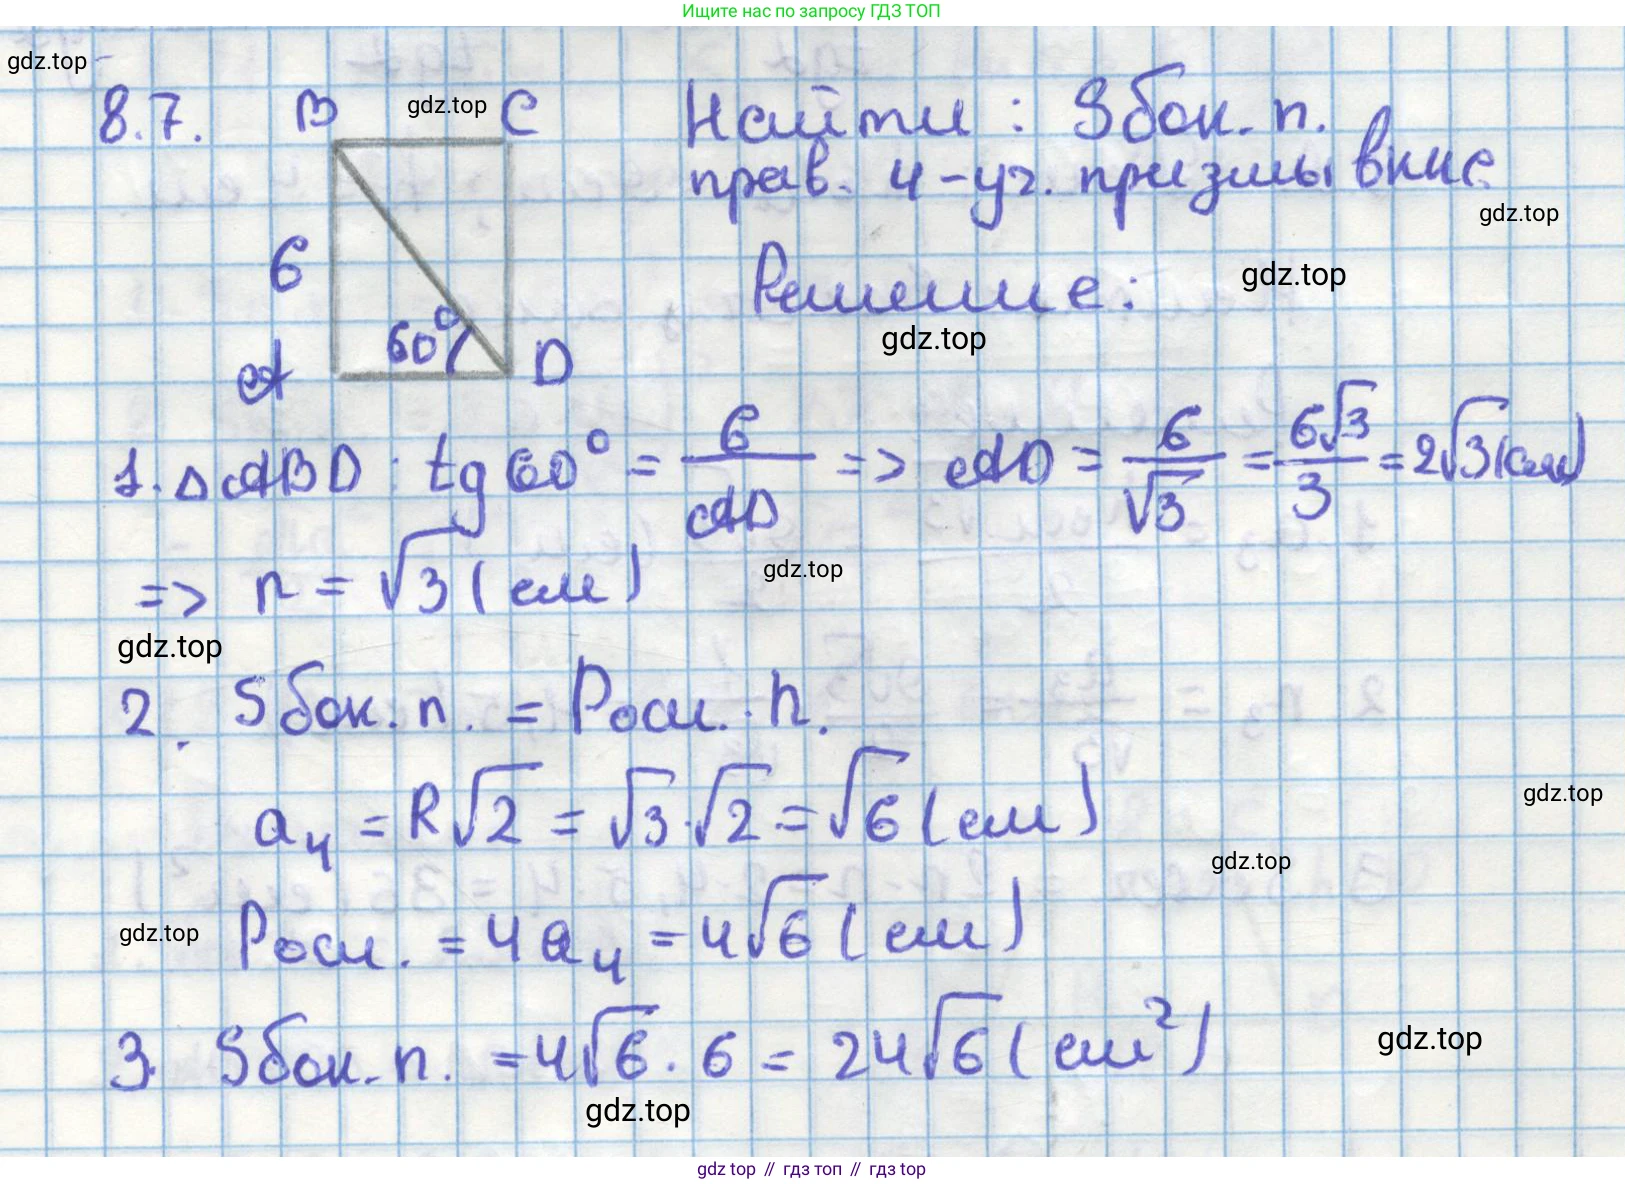 Ищите нас по запросу ГДЗ ТОП
gdz.top
8.7. B gdz.top C Найти : Sбок. п.
прав. 4-уг. призмы впис.
gdz.top
6 Решение: gdz.top
gdz.top
A 60° D
1. ΔABD : tg 60° = 6/AD => AD = 6/√3 = 6√3/3 = 2√3 (см)
gdz.top
=> r = √3 (см)
gdz.top
2. Sбок. п. = Pосн. · h.
gdz.top
a₄ = R√2 = √3 · √2 = √6 (см)
gdz.top
gdz.top
Pосн. = 4a₄ = 4√6 (см)
3. Sбок. п. = 4√6 · 6 = 24√6 (см²)
gdz.top
gdz.top
gdz top // гдз топ // гдз top